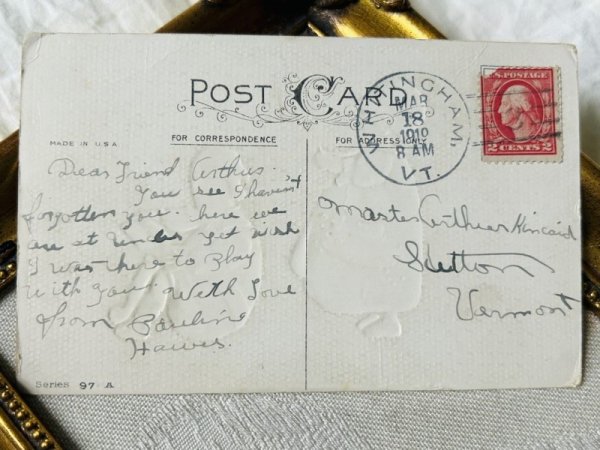 POST CARD
MADE IN U.S.A
FOR CORRESPONDENCE
FOR ADDRESS ONLY
WHITINGHAM,
MAR
18
1919
8 AM
VT.
U.S. POSTAGE
2 CENTS 2
Dear Friend Arthur
You see I haven't
forgotten you. here we
are at yet wish
I was there to Play
with you. With Love
from Pauline
Hawes.
Master Arthur Kincaid
Sutton
Vermont
Series 97 A